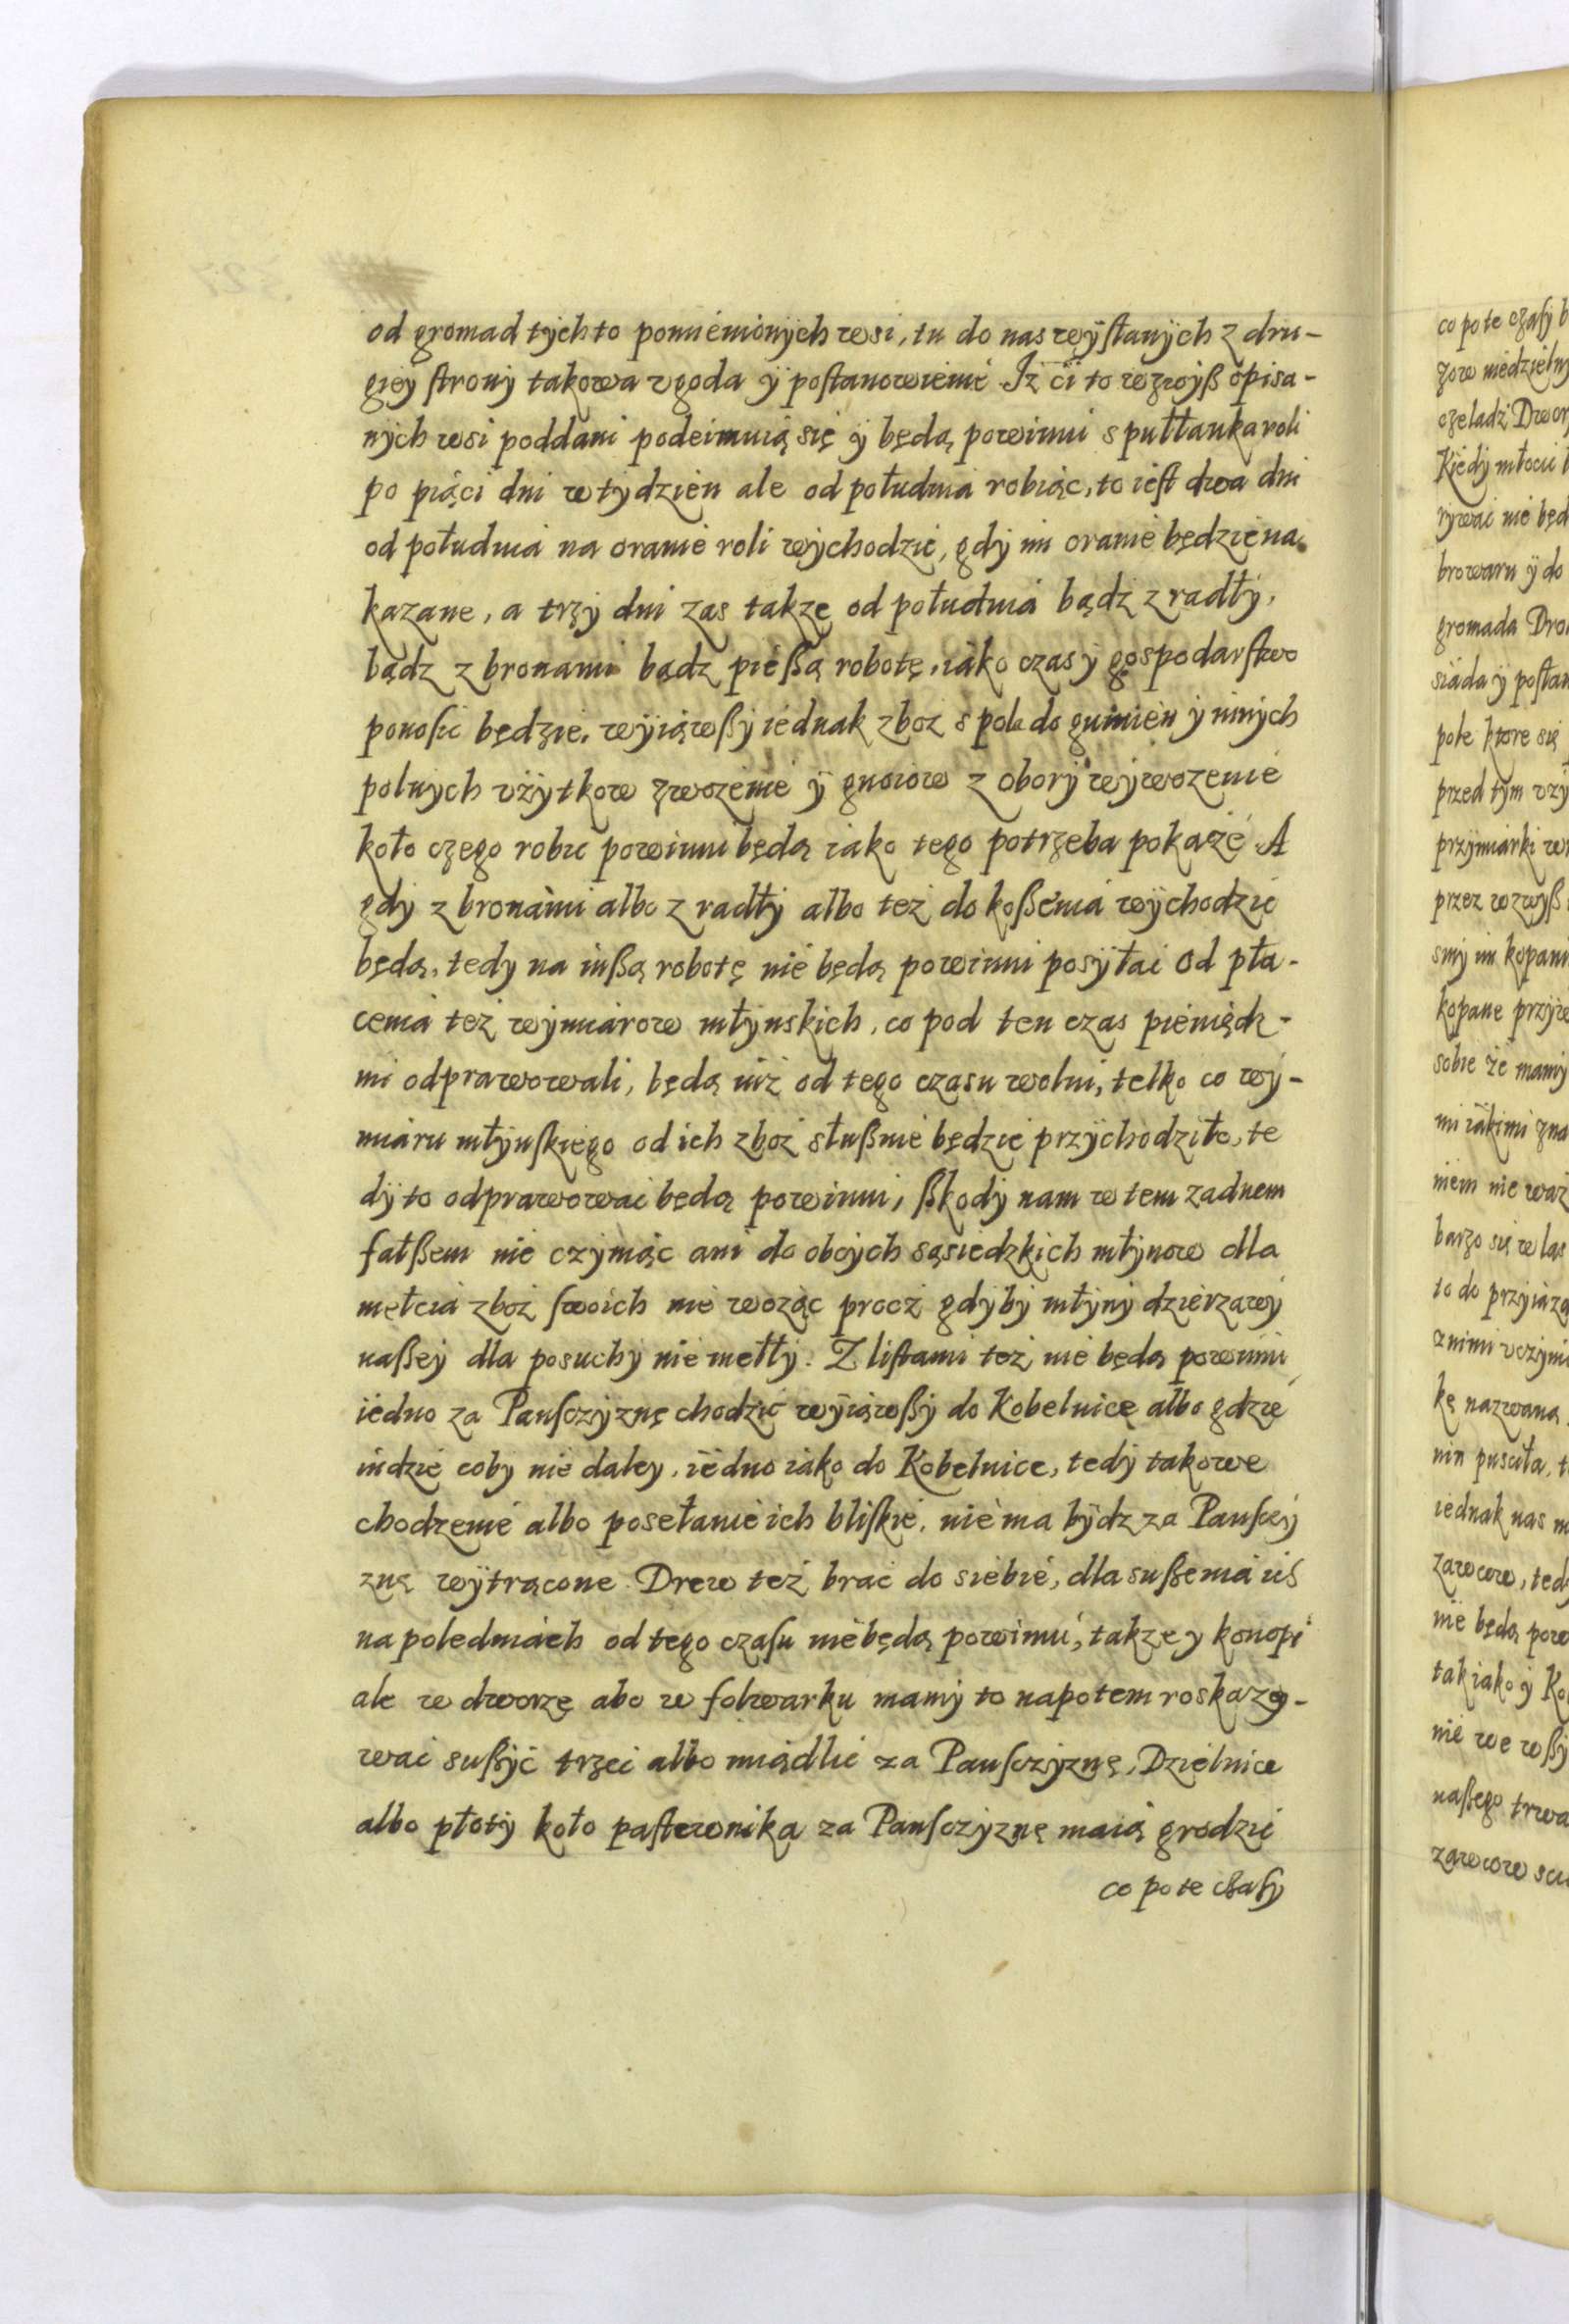 od gromad tych to pomienionych wsi, tu do nas wysłanych z dru-
giey strony takowa vgoda ÿ postanowienie Iz ci to wzwyß opisa-
nych wsi poddani podeimuią się ÿ będą powinni s pułłanka roli
po piąci dni w tydzien ale od południa robiąc, to iest dwa dni
od południa na oranie roli wychodzic, gdy im oranie będzie na
kazane, a trzy dni zas takze od południa bądz z radły,
bądz z bronami bądz pießą robotę, iako czas y gospodarstwo
ponosic będzie, wyiąwßy iednak zboz s pola do gumien y inych
polnych vżytkow zwozenie ÿ gnoiow z obory wywozenie
koło czego robic powinni będą iako tego potrzeba pokaże A
gdy z bronami albo z radły albo też do koßenia wychodzic
będą, tedy na inßą robotę nie będą powinni posyłac Od pła-
cenia też wymiarow młynskich, co pod ten czas pieniądz-
mi odprawowali, będą iuż od tego czasu wolni, telko co wy-
miaru młynskiego od ich zboż słußnie będzie przychodziło, te
dy to odprawowac będą powinni, ßkody nam w tem zadnem
fałßem nie czyniąc ani do obcych sąsiedzkich młynow dla
mełcia zboż swoich nie wożąc procż gdyby młyny dzierzawy
naßey dla posuchy nie mełły. Z listami też nie będą powinni
iedno za Pansczyznę chodzić wyiąwßy do Kobelnice albo gdzie
indzie coby nie daley, iedno iako do Kobelnice, tedy takowe
chodzenie albo posełanie ich bliskie, nie ma bydz za Pansczy
znę wytrącone Drew też brac do siebie, dla sußenia iuż
na poledniach od tego czasu nie będą powinni, takze y konopi
ale w dworze abo w folwarku mamy to napotem roskazy-
wac sußyć trzec albo miądlic za Pansczyznę, Dzielnice
albo płoty koło pastewnika za Pansczyznę maią grodzic
co po te czasy
co po te czasy b
czeladz Dwor
browaru ÿ do
gromada Dro
przed tym vzy
przymiarki w
przez wzwyß
kę nazwana
zawcow, ted
nie będą pow
tak iako ÿ Ko
naßego trwa